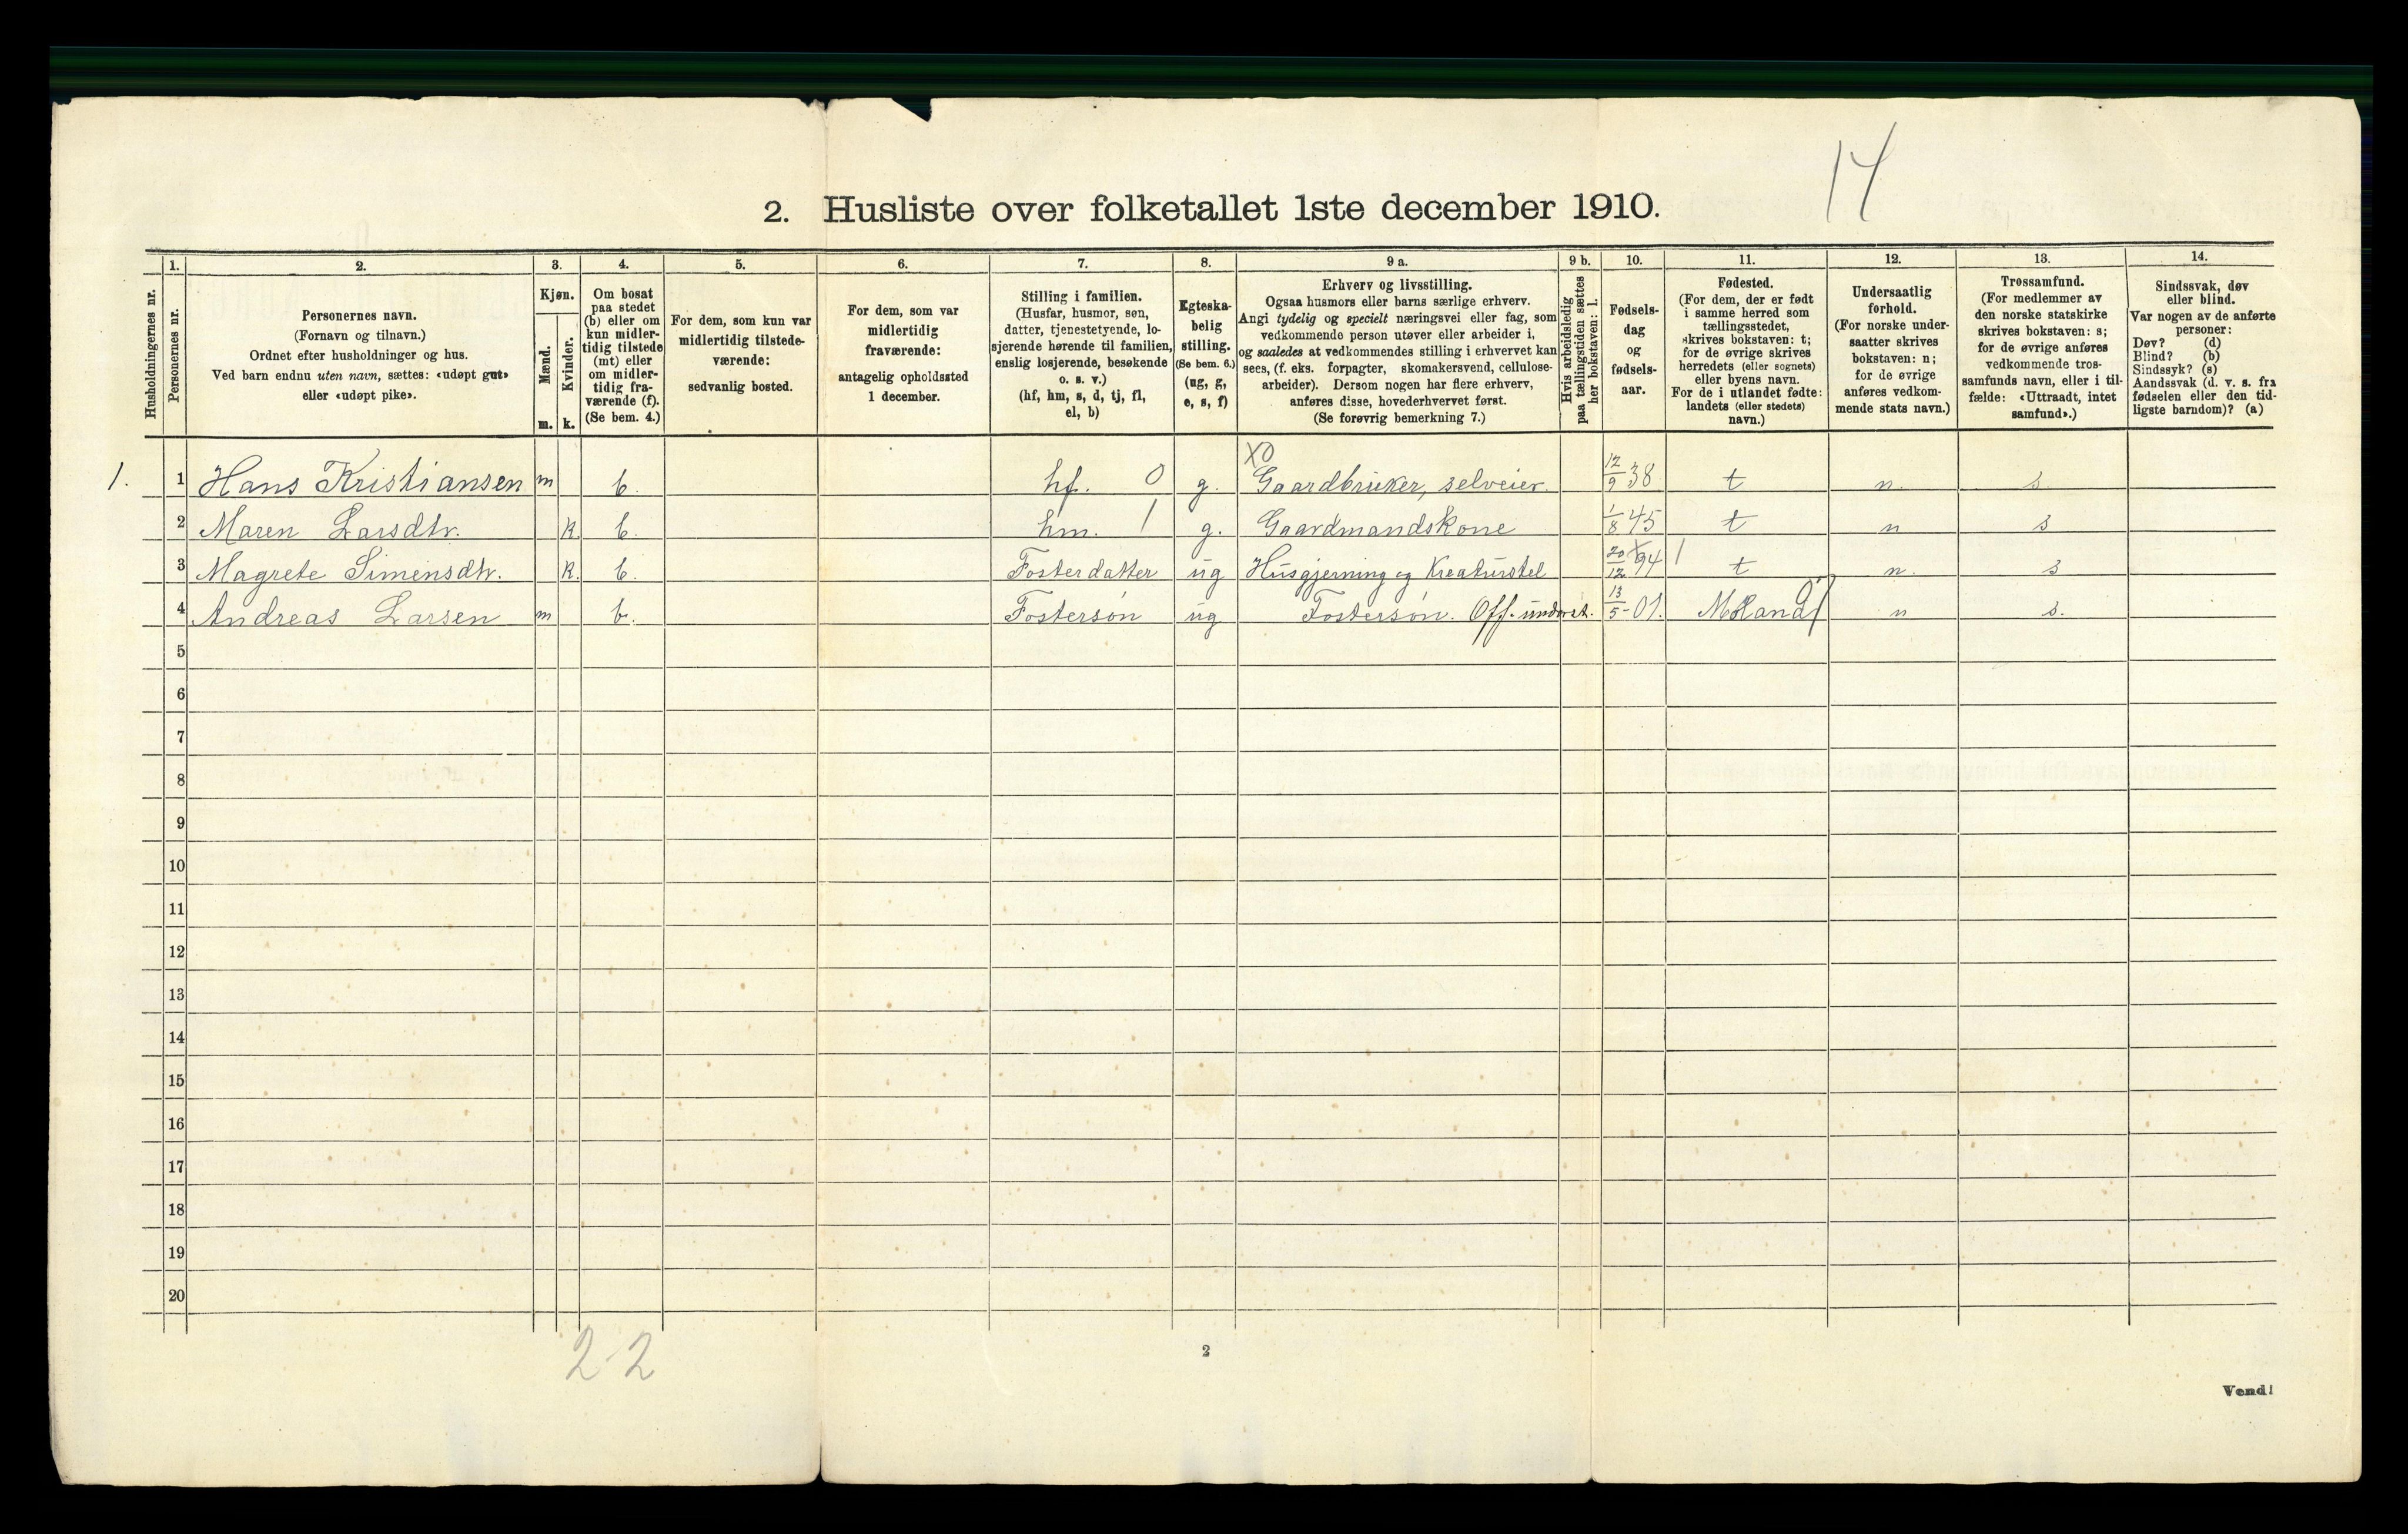 14
2. Husliste over folketallet 1ste december 1910.
Husholdningernes nr.
1.
Personernes nr.
2.
Personernes navn.
(Fornavn og tilnavn.)
Ordnet efter husholdninger og hus.
Ved barn endnu uten navn, sættes: «udøpt gut»
eller «udøpt pike».
3.
Kjøn.
Mænd.
Kvinder.
m. k.
4.
Om bosat
paa stedet
(b) eller om
kun midler-
tidig tilstede
(mt) eller
om midler-
tidig fra-
værende (f).
(Se bem. 4.)
5.
For dem, som kun var
midlertidig tilstede-
værende:
sedvanlig bosted.
6.
For dem, som var
midlertidig
fraværende:
antagelig opholdssted
1 december.
7.
Stilling i familien.
(Husfar, husmor, søn,
datter, tjenestetyende, lo-
sjerende hørende til familien,
enslig losjerende, besøkende
o. s. v.)
(hf, hm, s, d, tj, fl,
el, b)
8.
Egteska-
belig
stilling.
(Se bem. 6.)
(ug, g,
e, s, f)
9 a.
Erhverv og livsstilling.
Ogsaa husmors eller barns særlige erhverv.
Angi tydelig og specielt næringsvei eller fag, som
vedkommende person utøver eller arbeider i,
og saaledes at vedkommendes stilling i erhvervet kan
sees, (f. eks. forpagter, skomakersvend, cellulose-
arbeider). Dersom nogen har flere erhverv,
anføres disse, hovederhvervet først.
(Se forøvrig bemerkning 7.)
9 b.
Hvis arbeidsledig
paa tællingstiden sættes
her bokstaven: l.
10.
Fødsels-
dag
og
fødsels-
aar.
11.
Fødested.
(For dem, der er født
i samme herred som
tællingsstedet,
skrives bokstaven: t;
for de øvrige skrives
herredets (eller sognets)
eller byens navn.
For de i utlandet fødte:
landets (eller stedets)
navn.)
12.
Undersaatlig
forhold.
(For norske under-
saatter skrives
bokstaven: n;
for de øvrige
anføres vedkom-
mende stats navn.)
13.
Trossamfund.
(For medlemmer av
den norske statskirke
skrives bokstaven: s;
for de øvrige anføres
vedkommende tros-
samfunds navn, eller i til-
fælde: «Uttraadt, intet
samfund».)
14.
Sindssvak, døv
eller blind.
Var nogen av de anførte
personer:
Døv? (d)
Blind? (b)
Sindssyk? (s)
Aandssvak (d. v. s. fra
fødselen eller den tid-
ligste barndom)? (a)
X0
1. 1 Hans Kristiansen m b. hf. 0 g. Gaardbruker, selveier. 12/9 38 t n. s.
2 Maren Larsdtr. k. b. hm. 1 g. Gaardmandskone 1/8 45 t n s
3 Magrete Simensdtr. k. b. Fosterdatter ug Husgjerning og Kreaturstel 20/12 94 t n. s
4 Andreas Larsen m b. Fostersøn ug Fostersøn. Off. underst. 13/5-01. n s.
5
6
7
8
9
10
11
12
13
14
15
16
17
18
19
20
2-2
2
Vend!